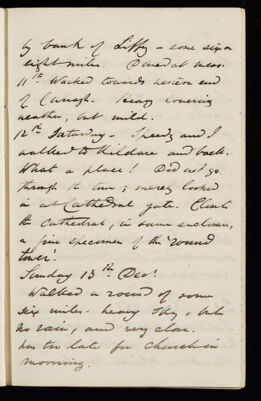 by bank of Liffy - some six or
eight miles. Dined at mess.
11th Walked towards western end
of Curragh. Heavy lowering
weather, but mild.
12th Saturday - Speedy and I
walked to Kildare and back.
What a place! Did not go
through the town; merely looked
in at Cathedral gate. Close to
the Cathedral, in same enclosure,
a fine specimen of the 'round
tower'.
Sunday 13th Decr.
Walked a round of some
six miles. heavy sky, but
no rain, and very close.
Was too late for Church in
morning.